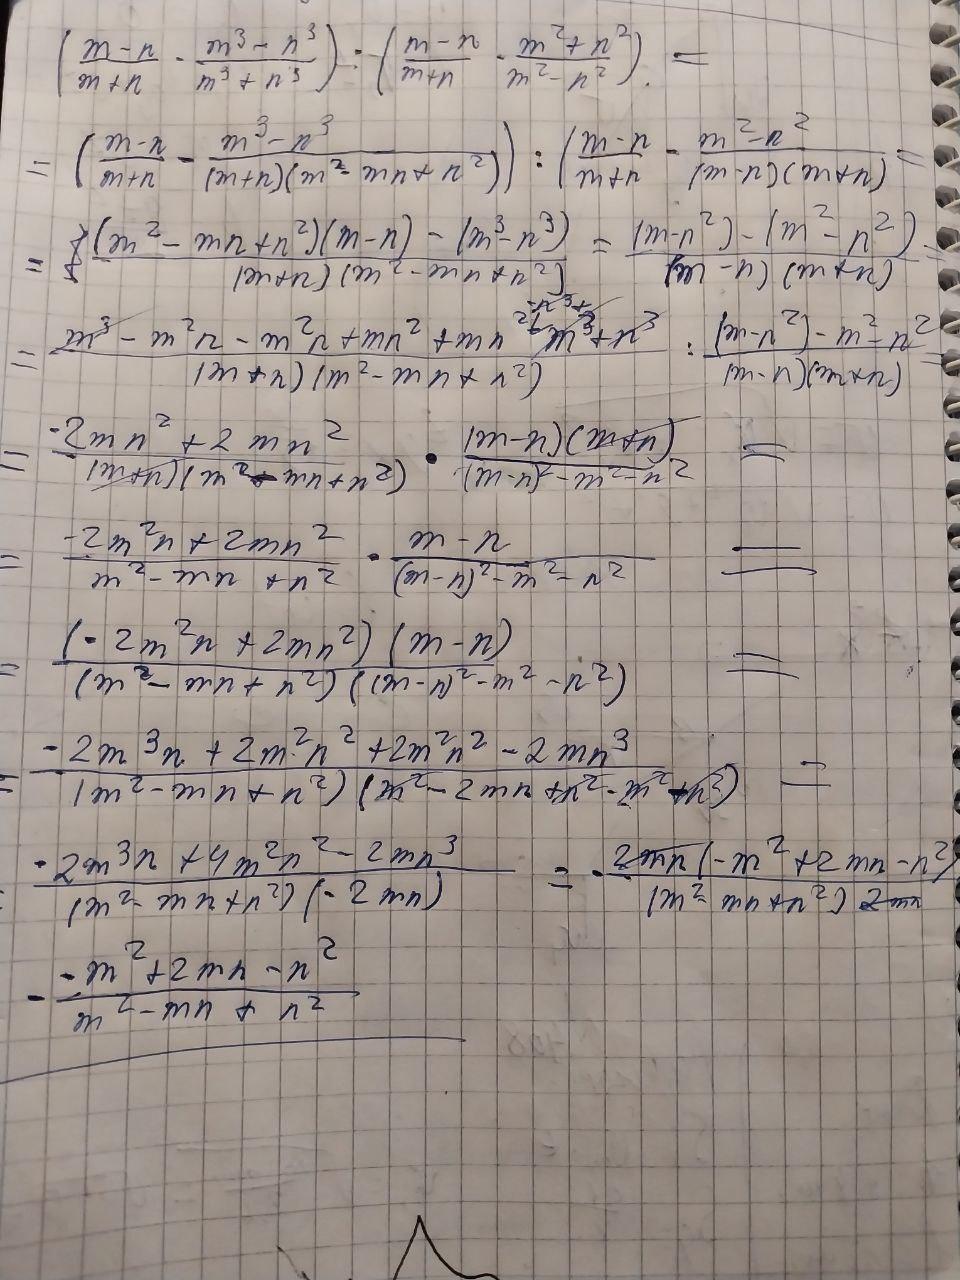 (m-n/m+n - m³-n³/m³+n³) : (m-n/m+n - m²+n²/m²-n²). =
= (m-n/m+n - m³-n³/(m+n)(m²-mn+n²)) : (m-n/m+n - m²-n²/(m-n)(m+n) =
= (m²-mn+n²)(m-n)-(m³-n³)/(m+n)(m²-mn+n²) = (m-n²)-(m²-n²)/(m-n)(m+n) =
= m³-m²n-m²n+mn²+mn²-n³+m³+n³/(m+n)(m²-mn+n²) : (m-n²)-m²-n²/(m-n)(m+n) =
= -2mn²+2mn²/(m+n)(m²-mn+n²) • (m-n)(m+n)/(m-n)²-m²-n² =
= -2m²n+2mn²/m²-mn+n² • m-n/(m-n)²-m²-n² =
= (-2m²n+2mn²)(m-n)/(m²-mn+n²)((m-n)²-m²-n²) =
= -2m³n+2m²n²+2m²n²-2mn³/(m²-mn+n²)(m²-2mn+n²-m²+n²) =
= -2m³n+4m²n²-2mn³/(m²-mn+n²)(-2mn) = - 2mn(-m²+2mn-n²)/(m²-mn+n²)2mn
- -m²+2mn-n²/m²-mn+n²